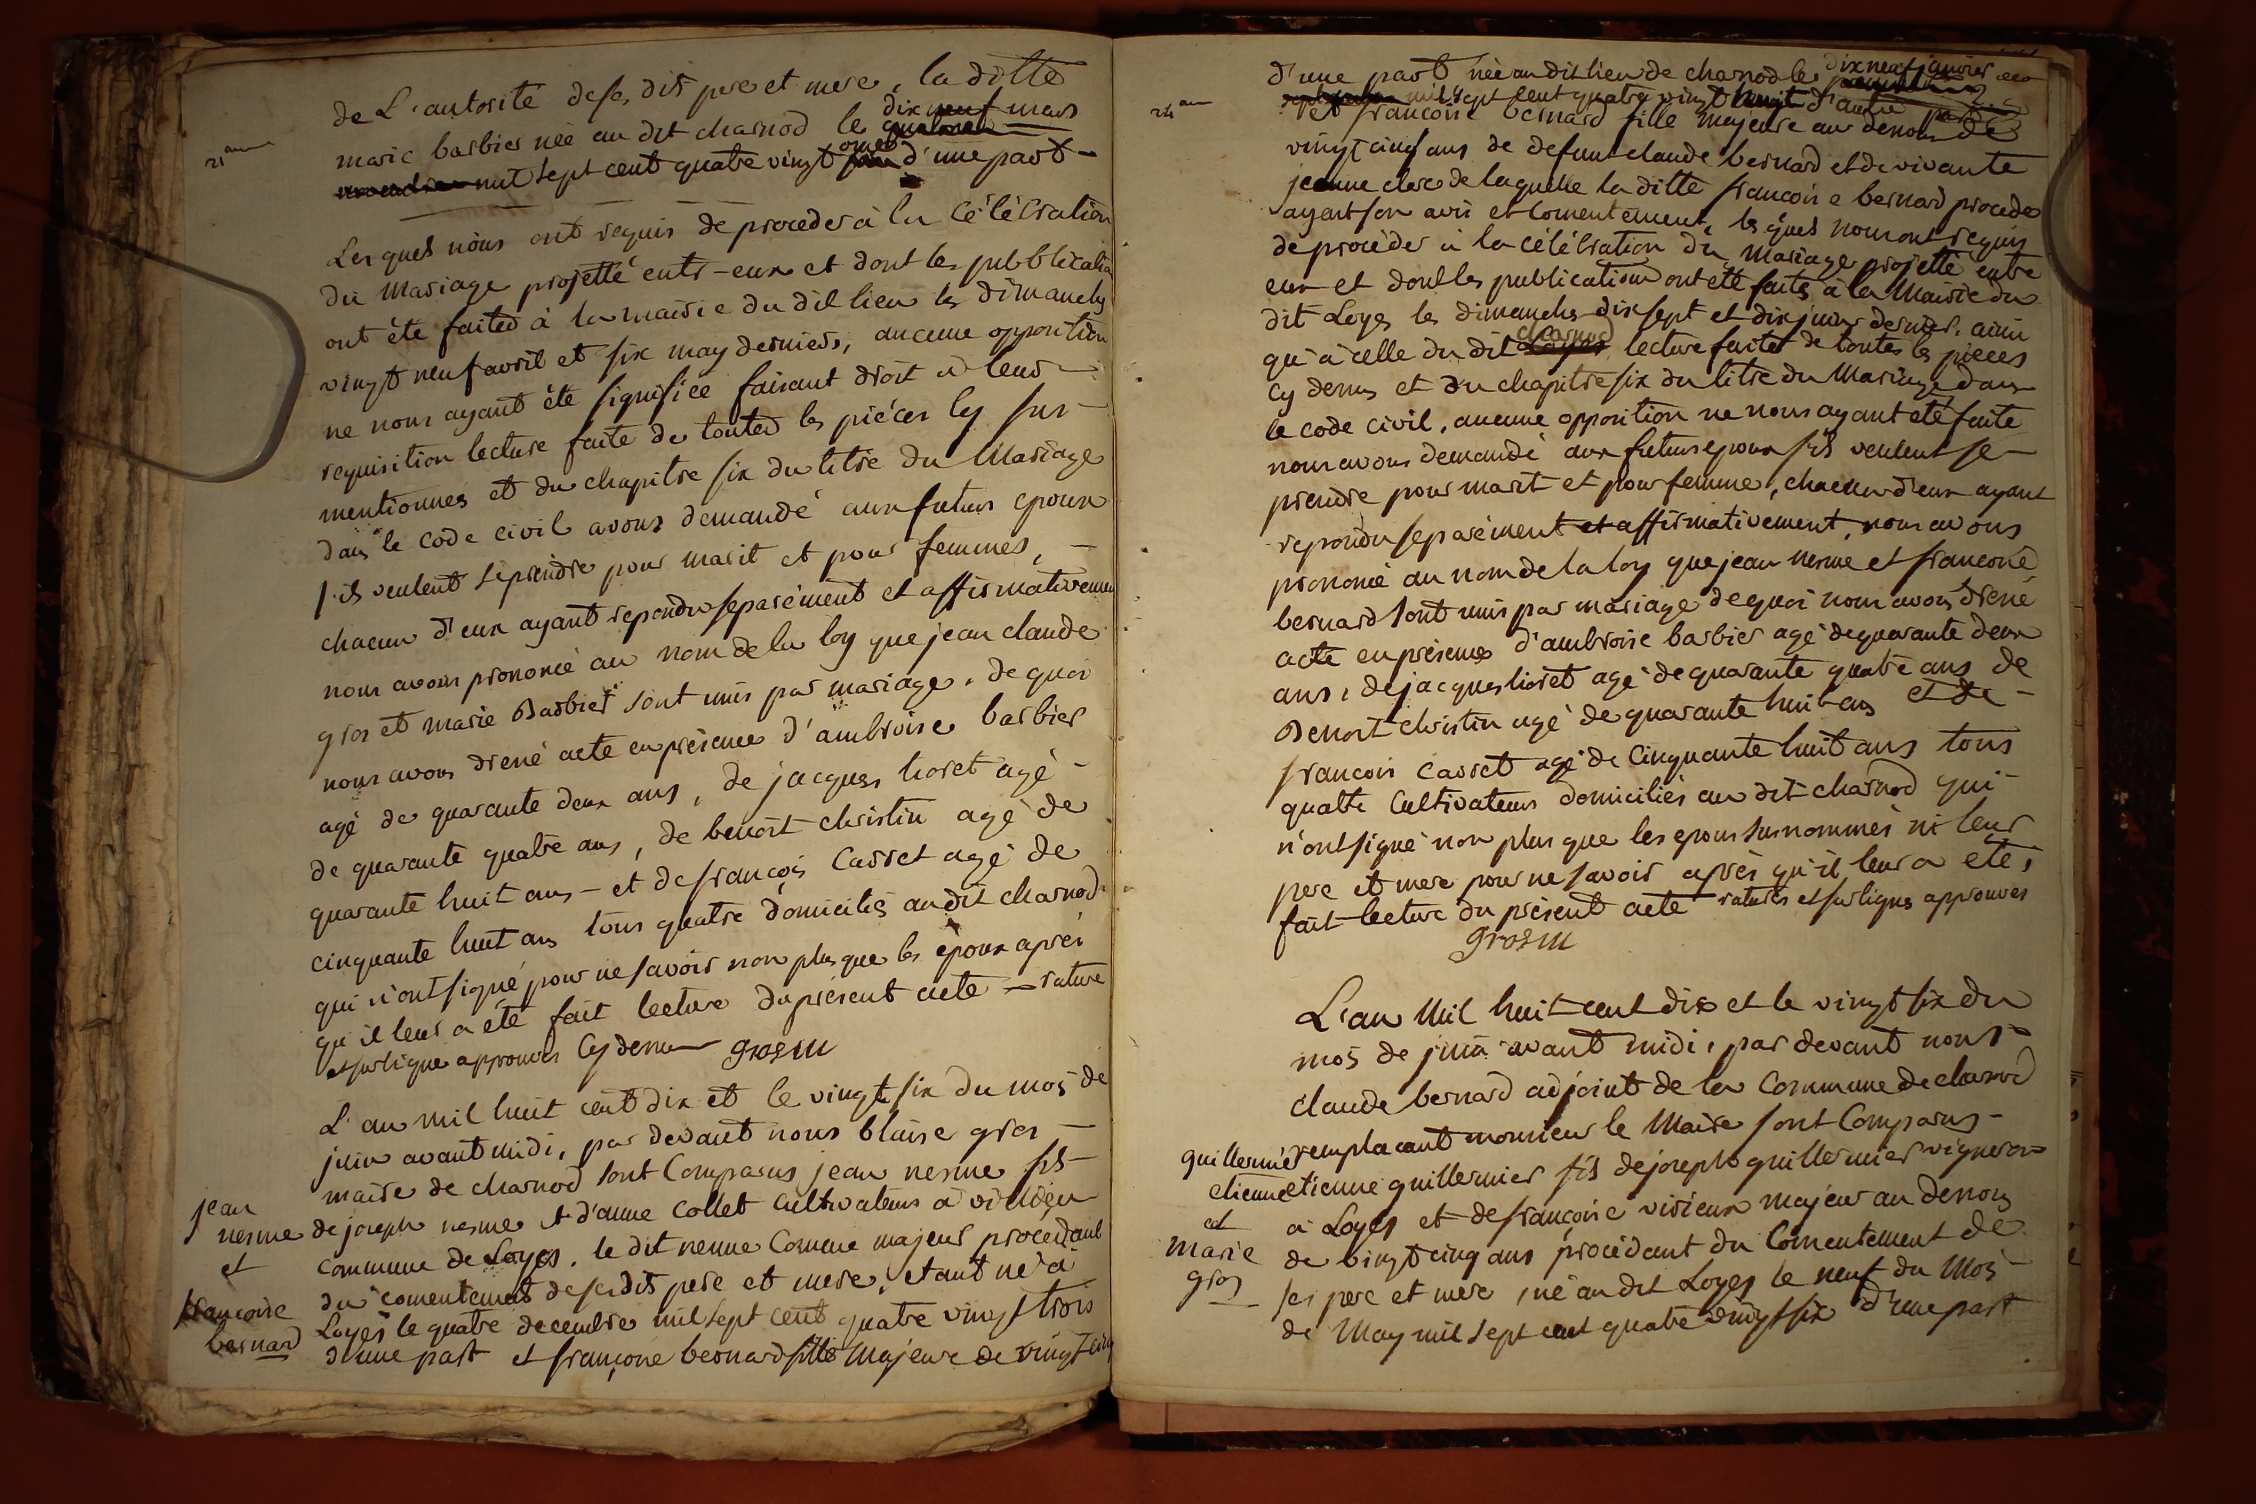 de L'autorité de ses dits pere et mere, la ditte
21 ans
marie barbier née au dit charnod le dix neuf mars
mil sept cent quatre vingt onze d'une part
Lesquels nous ont requis de proceder à la Célébration
du Mariage projetté entr-eux et dont les publication
ont été faites à la mairie du dit lieu les dimanches
vingt neuf avril et six may derniers, aucune opposition
ne nous ayant été signifiée faisant droit à leur
requisition lecture faite de toutes les piéces cy sus
mentionnés et du chapitre six du titre du Mariage
dans le code civil avons demandé aux futurs epoux
s'ils veulent se prendre pour marit et pour femmes,
chacun d'eux ayant repondu separément et affirmativement
nous avons prononcé au nom de la loy que jean claude
gros et marie Barbier sont unis par mariage. de quoi
nous avons dressé acte en présence d'ambroise barbier
agé de quarante deux ans, de jacques lioret agé
de quarante quatre ans, de benoit christin agé de
quarante huit ans - et de françois Carret agé de
cinquante huit ans tous quatre domiciliés au dit charnod
qui n'ont signé pour ne savoir non plus que les epoux après
qu'il leur a été fait lecture du présent acte - rature
et surligne approuvés Cy dessus grosm
L'an mil huit cent dix et le vingt six du mois de
juin avant midi, par devant nous blaise gros
maire de charnod sont Comparus jean nesme fils
jean
nesme
et
françoise
bernard
de joseph nesme et d'anne Collet Cultivateurs à
commune de Loyes. le dit nesme Comme majeur procédant
du consentement de ses dits pere et mere, etant né à
Loyes le quatre decembre mil sept cent quatre vingt trois
d'une part et françoise bernard fille Majeure de vingt cinq
d'une part née au dit lieu de charnod le dix neuf janvier
24 ans
mil sept cent quatre vingt d'autre part
et françoise bernard fille majeure au dessous de
vingt cinq ans de defunt claude bernard et de vivante
jeanne clerc de laquelle la ditte françoise bernard procede
ayant son avis et consentement, lesquels nous ont requis
de procéder à la célébration du Mariage projetté entre
eux et dont les publications ont été faites à la Mairie du
dit Loyes les dimanches dix sept et dix juin dernier, ainsi
qu'à celle du dit charnod lecture faite de toutes les pieces
cy dessus et du chapitre six du titre du Mariage dans
le code civil, aucune opposition ne nous ayant été faite
nous avons demandé aux futurs epoux s'ils veulent se
prendre pour marit et pour femme, chacun d'eux ayant
repondu separément et affirmativement, nous avons
prononcé au nom de la loy que jean nesme et françoise
bernard sont unis par mariage de quoi nous avons dressé
acte en présence d'ambroise barbier agé de quarante deux
ans, de jacques lioret agé de quarante quatre ans de
Benoit christin agé de quarante huit ans et de
françois Carret agé de Cinquante huit ans tous
quatre Cultivateurs domiciliés au dit charnod qui
n'ont signé non plus que les epoux susnommés ni leur
pere et mere pour ne savoir après qu'il leur a été
fait lecture du présent acte ratures et surlignes approuvés
grosm
L'an Mil huit cent dix et le vingt six du
mois de juin avant midi, par devant nous
claude bernard adjoint de la Commune de charnod
remplacant monsieur le Maire sont Comparus
guillermier
etienne
et
Marie
gros
etienne guillermier fils de joseph guillermier vigneron
à Loyes et de françoise virieux majeur au dessous
de vingt cinq ans procédant du Consentement de
ses pere et mere, né au dit Loyes le neuf du Mois
de May mil sept cent quatre vingt six d'une part